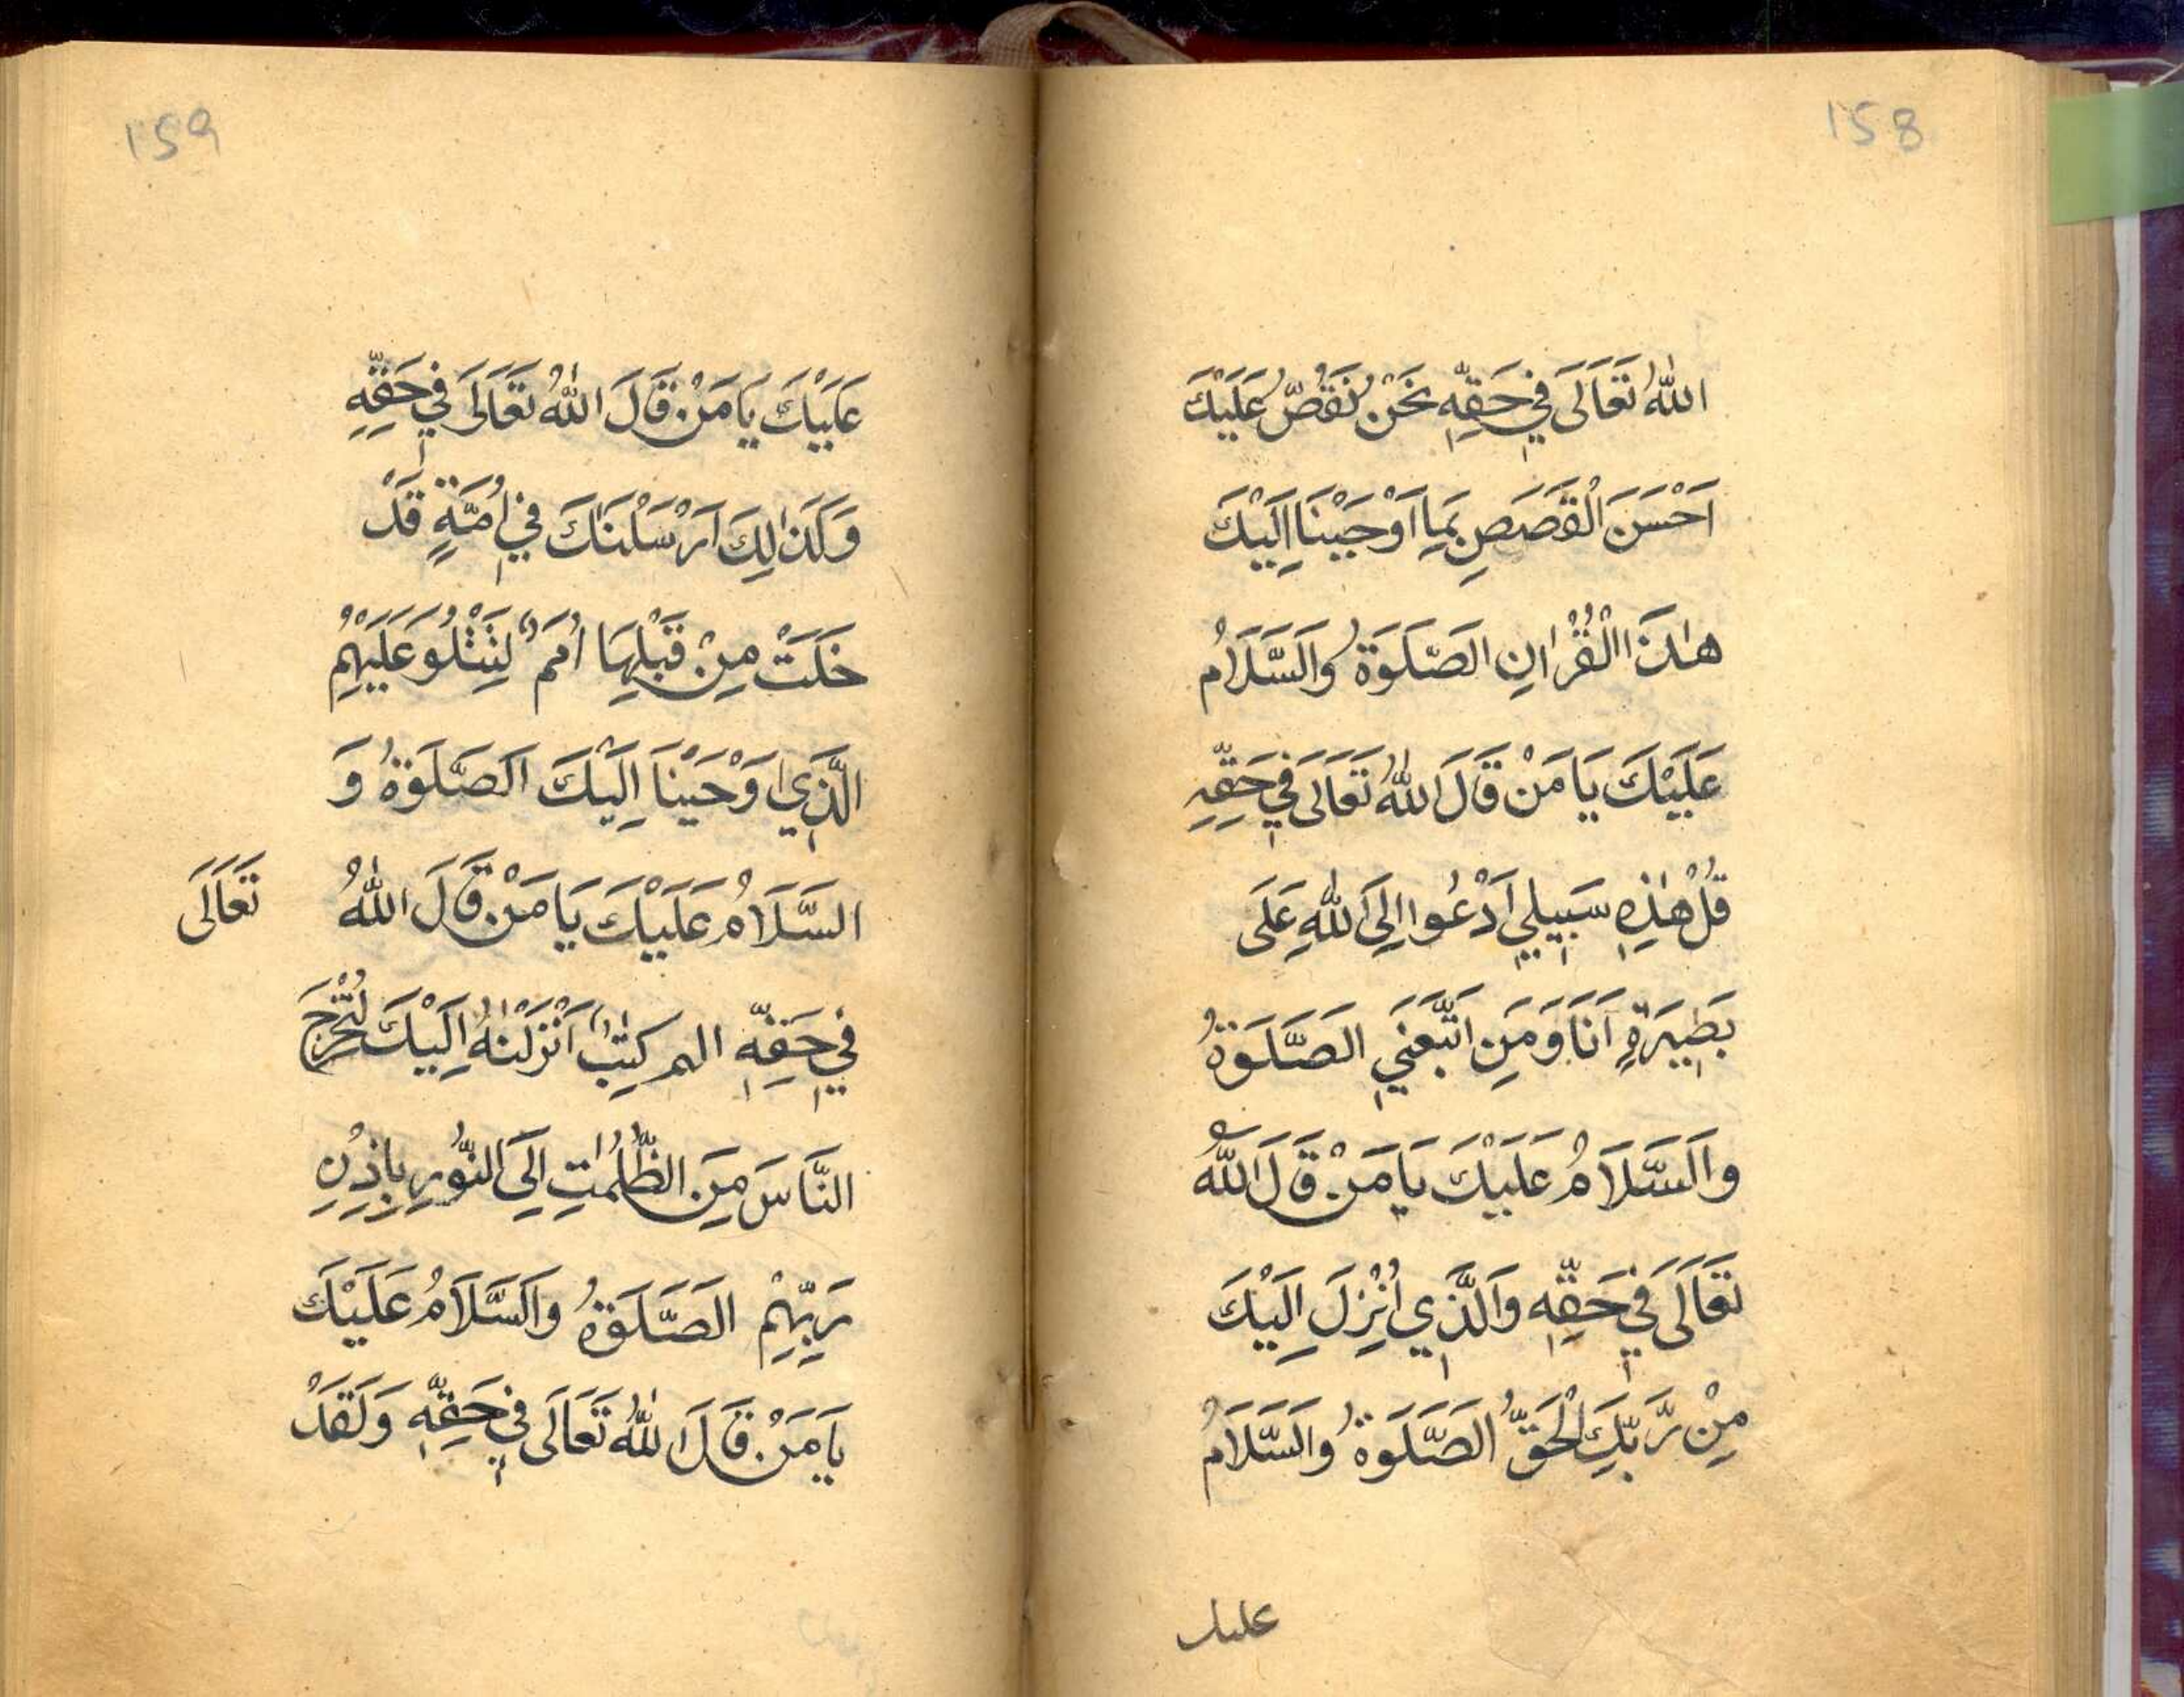 158
اللّٰهُ تَعَالَى فِي حَقِّهِ نَحْنُ نَقُصُّ عَلَيْكَ
اَحْسَنَ الْقَصَصِ بِمَا اَوْحَيْنَا اِلَيْكَ
هٰذَا الْقُرْاٰنِ الصَّلَوةُ وَالسَّلَامُ
عَلَيْكَ يَا مَنْ قَالَ اللّٰهُ تَعَالَى فِي حَقِّهِ
قُلْ هٰذِهِ سَبِيلِي اَدْعُوا اِلَى اللّٰهِ عَلَى
بَصِيرَةٍ اَنَا وَمَنِ اتَّبَعَنِي الصَّلَوةُ
وَالسَّلَامُ عَلَيْكَ يَا مَنْ قَالَ اللّٰهُ
تَعَالَى فِي حَقِّهِ وَالَّذِي اُنْزِلَ اِلَيْكَ
مِنْ رَّبِّكَ الْحَقُّ الصَّلَوةُ وَالسَّلَامُ
عليك
159
عَلَيْكَ يَا مَنْ قَالَ اللّٰهُ تَعَالَى فِي حَقِّهِ
وَكَذٰلِكَ اَرْسَلْنٰكَ فِي اُمَّةٍ قَدْ
خَلَتْ مِنْ قَبْلِهَا اُمَمٌ لِتَتْلُوَ عَلَيْهِمُ
الَّذِي اَوْحَيْنَا اِلَيْكَ الصَّلَوةُ وَ
السَّلَامُ عَلَيْكَ يَا مَنْ قَالَ اللّٰهُ تَعَالَى
فِي حَقِّهِ المر كِتٰبٌ اَنْزَلْنٰهُ اِلَيْكَ لِتُخْرِجَ
النَّاسَ مِنَ الظُّلُمٰتِ اِلَى النُّورِ بِاِذْنِ
رَبِّهِمْ الصَّلَوةُ وَالسَّلَامُ عَلَيْكَ
يَا مَنْ قَالَ اللّٰهُ تَعَالَى فِي حَقِّهِ وَلَقَدْ